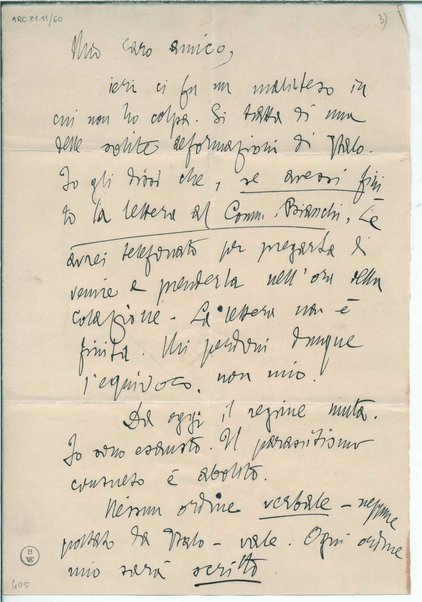 ARC 21.11/60
3)
Mio caro amico,
ieri ci fu un malinteso in
cui non ho colpa. Si tratta di una
delle solite deformazioni di Italo.
Io gli dissi che, se avessi fini
to la lettera al Comm. Bianchi, Le
avrei telefonato per pregarla di
venire a prenderla nell'ora della
colazione - La lettera non è
finita. Mi perdoni dunque
l'equivoco, non mio.
Da oggi il regime muta.
Io sono esausto. Il parassitismo
consueto è abolito.
Nessun ordine verbale - neppure
portato da Italo - vale. Ogni ordine
mio sarà scritto.
405